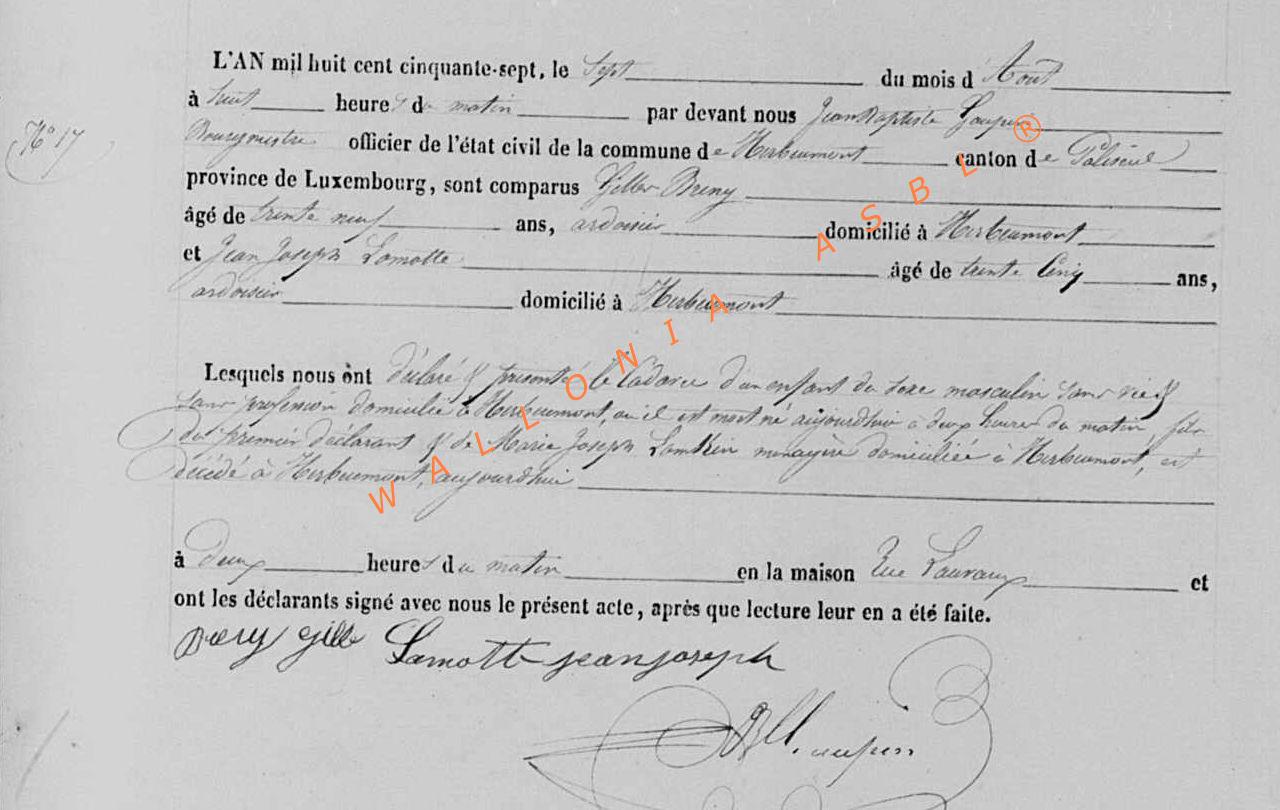 L'AN mil huit cent cinquante-sept, le Sept du mois d'Août
à huit heures du matin par devant nous Jean Baptiste
N° 17
Bourgmestre officier de l'état civil de la commune de Herbeumont canton de Paliseul
province de Luxembourg, sont comparus Gilles
âgé de trente neuf ans, ardoisier domicilié à Herbeumont
et Jean Joseph Lamotte âgé de trente Cinq ans,
ardoisier domicilié à Herbeumont
Lesquels nous ont déclaré & présenté le Cadavre d'un enfant du sexe masculin sans vie &
sans profession domicilié à Herbeumont, où il est mort né aujourdhui à deux heures du matin fils
du premier déclarant & de Marie Joseph ménagère domiciliée à Herbeumont, est
décédé à Herbeumont, aujourdhui
à deux heures du matin en la maison Rue et
ont les déclarants signé avec nous le présent acte, après que lecture leur en a été faite.
Lamotte jean joseph
WALLONIA ASBL ®